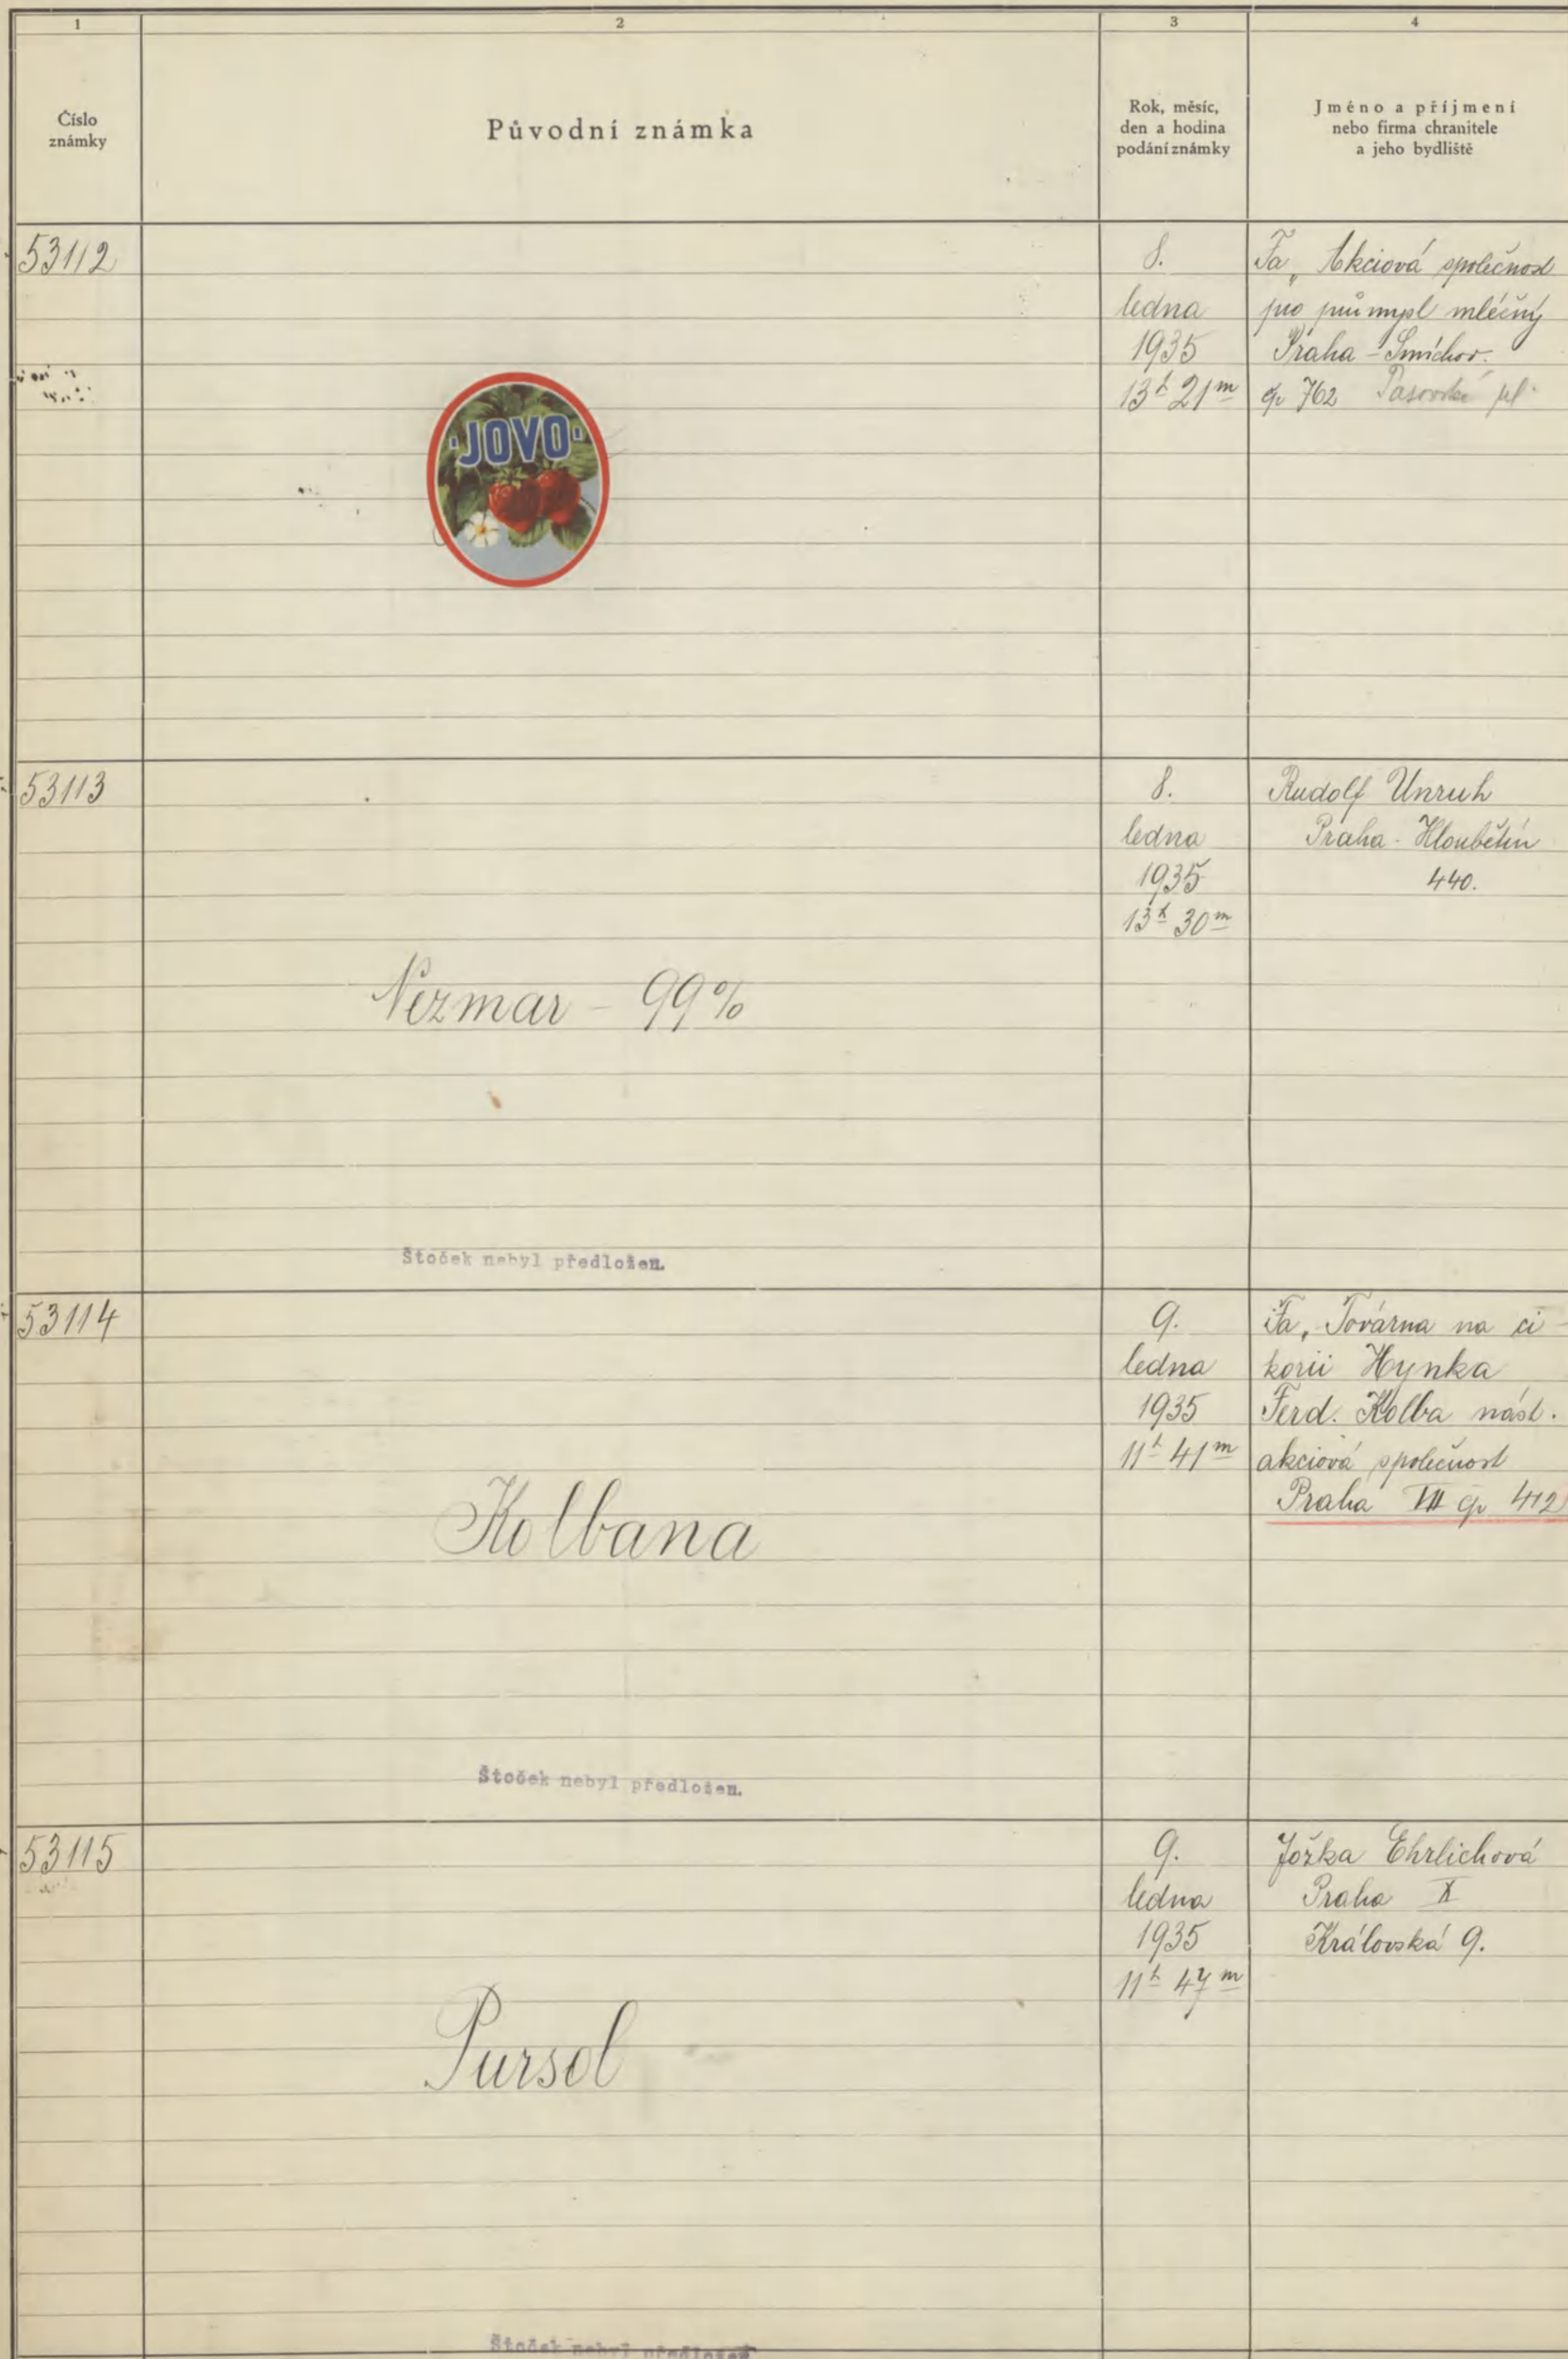 1
2
3
4
Číslo
známky
Původní známka
Rok, měsíc,
den a hodina
podání známky
Jméno a příjmení
nebo firma chranitele
a jeho bydliště
53112
JOVO
8.
ledna
1935
13h 21m
Fa „Akciová společnost
pro průmysl mléčný
Praha - Smíchov.
čp 762
53113
Nezmar - 99%
Štoček nebyl předložen.
8.
ledna
1935
13h 30m
Rudolf Unruh
Praha - Hloubětín
440.
53114
Kolbana
Štoček nebyl předložen.
9.
ledna
1935
11h 41m
Fa, Továrna na ci-
korii Hynka
Ferd. Kolba násl.
akciová společnost
Praha VII čp 412
53115
Pursol
Štoček nebyl předložen
9.
ledna
1935
11h 47m
Jožka Ehrlichová
Praha X
Královská 9.